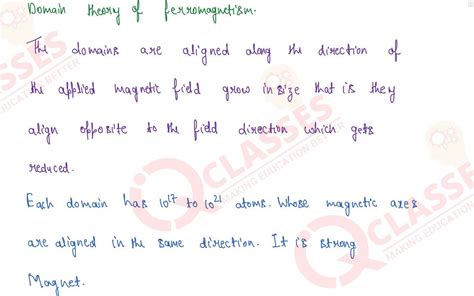 Domain theory of ferromagnetism.
The domains are aligned along the direction of
the applied magnetic field grow in size that is they
align opposite to the field direction which gets
reduced.
Each domain has 10¹⁷ to 10²¹ atoms. Whose magnetic axes
are aligned in the same direction. It is strong
Magnet.
CLASSES
MAKING EDUCATION BETTER
QCLASSES
MAKING EDUCATION BETTER
QCLASSES
MAKING EDUCATION